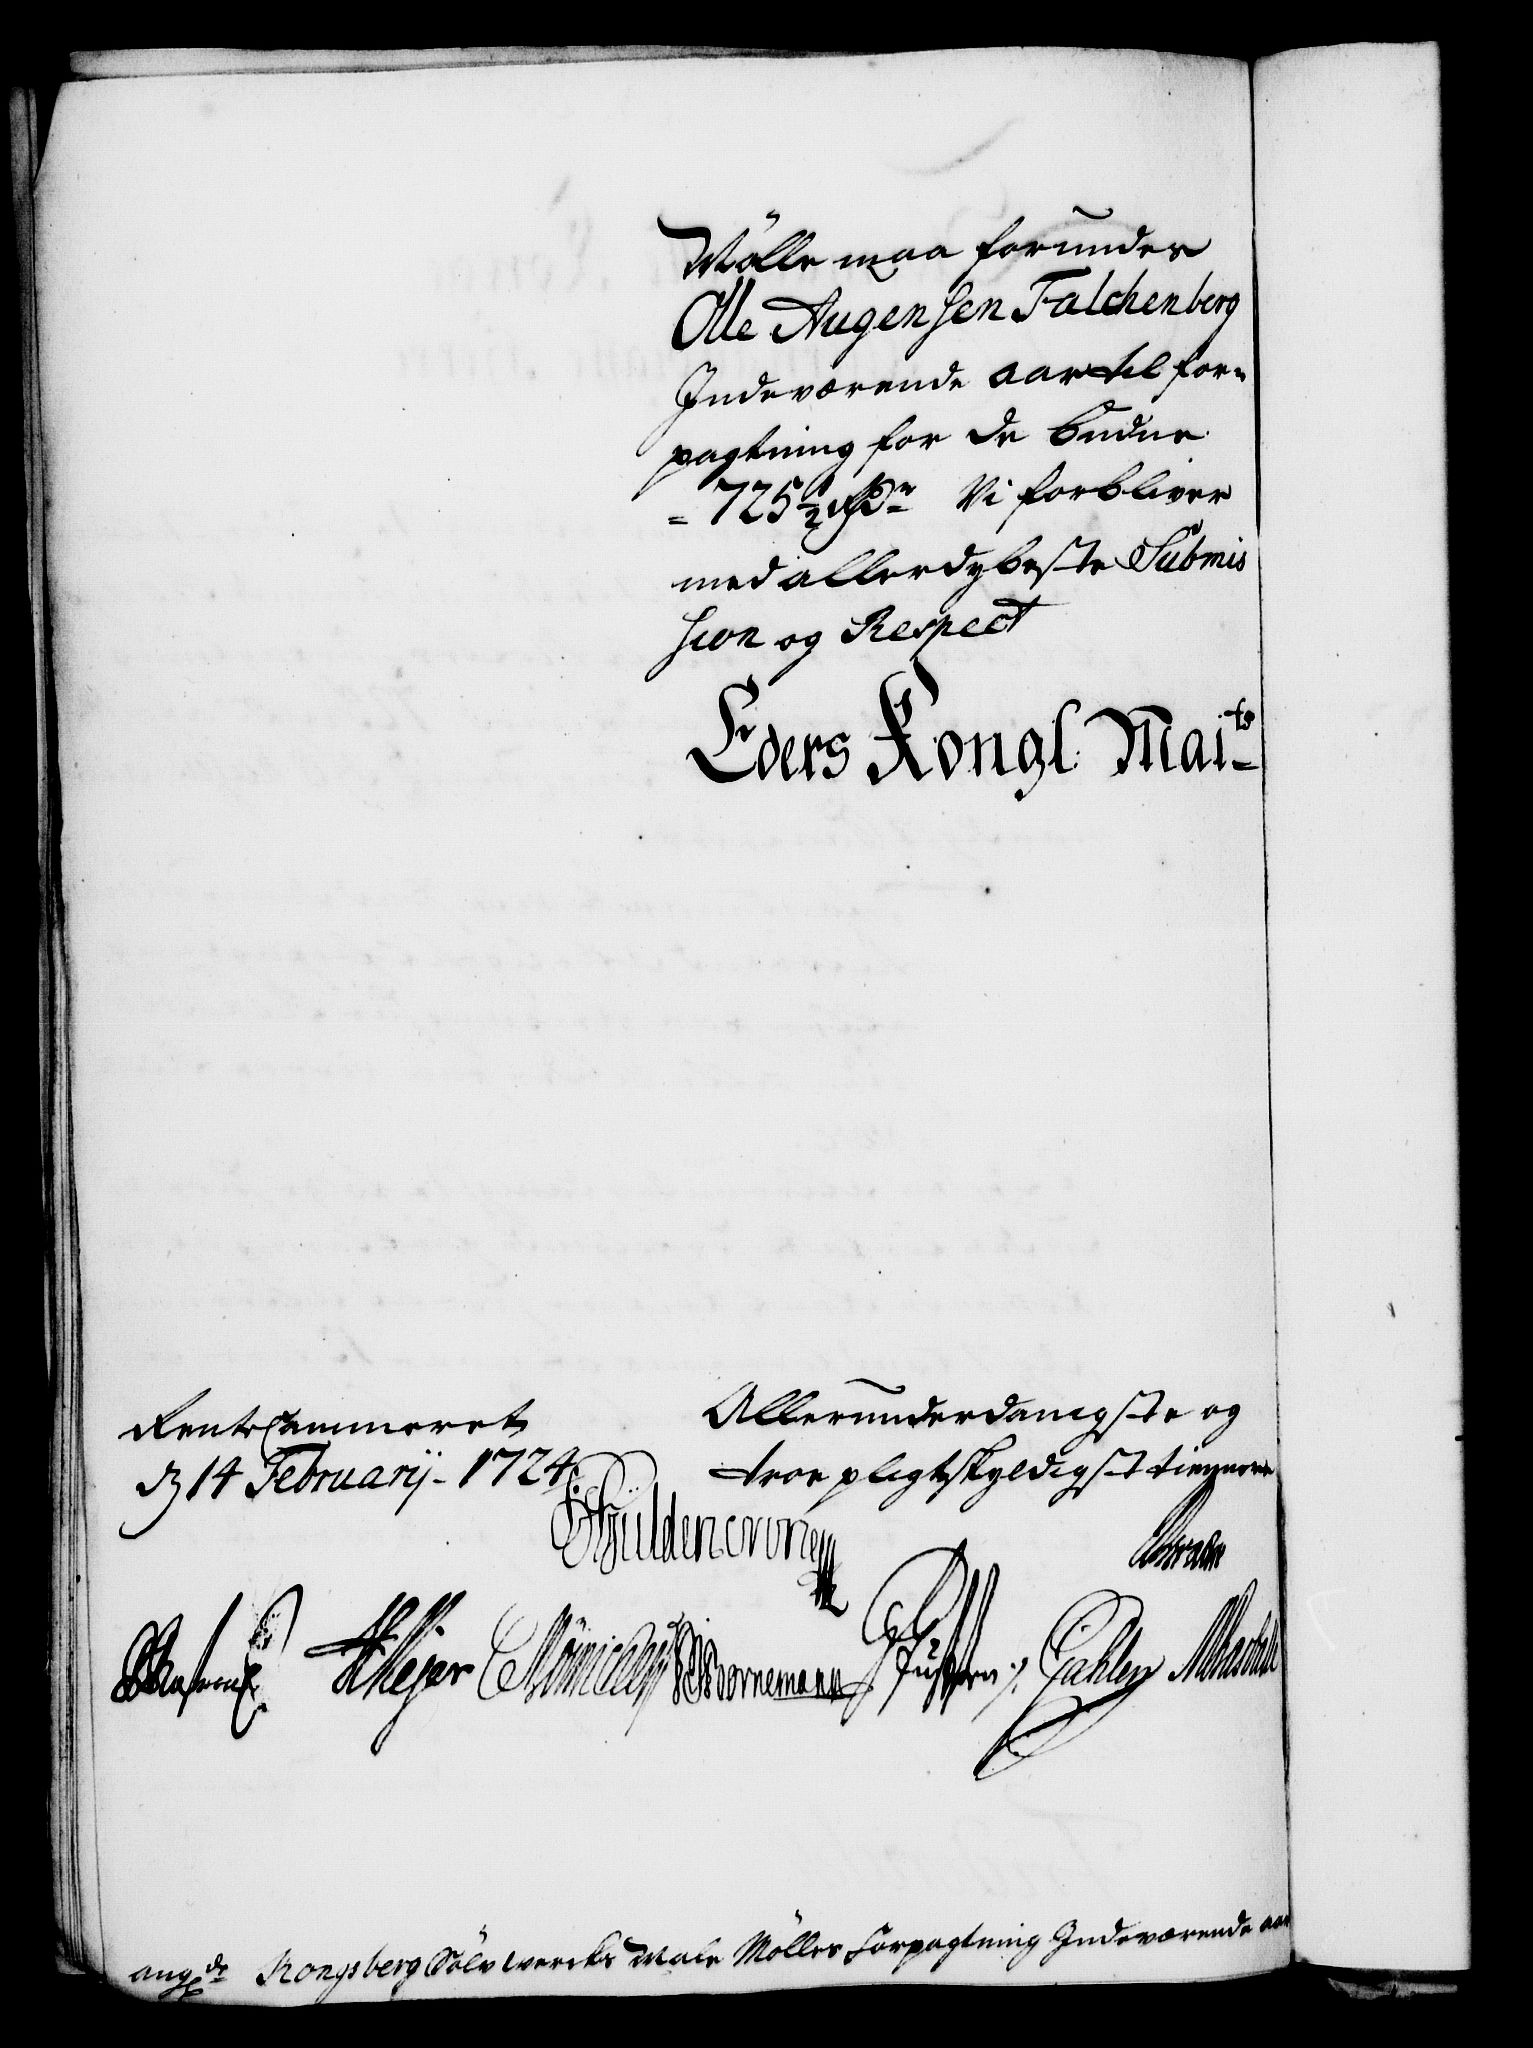 Mölle maa forundes
Olle Augensen Falchenberg
Indeværende aar til for=
pagtning for de budne
= 725½ Rdr Vi forbliver
med allerdybeste Submis
sion og Respect
Eders Kongl Maits
RenteCammeret
d 14 Februarij 1724
Allerunderdanigste og
troe pligtskyldigste tienere
Güldencrone
Meÿer
WBornemann
angde Kongsberg Sölv Wercks Male Mölles Forpagtning Indeværende aar